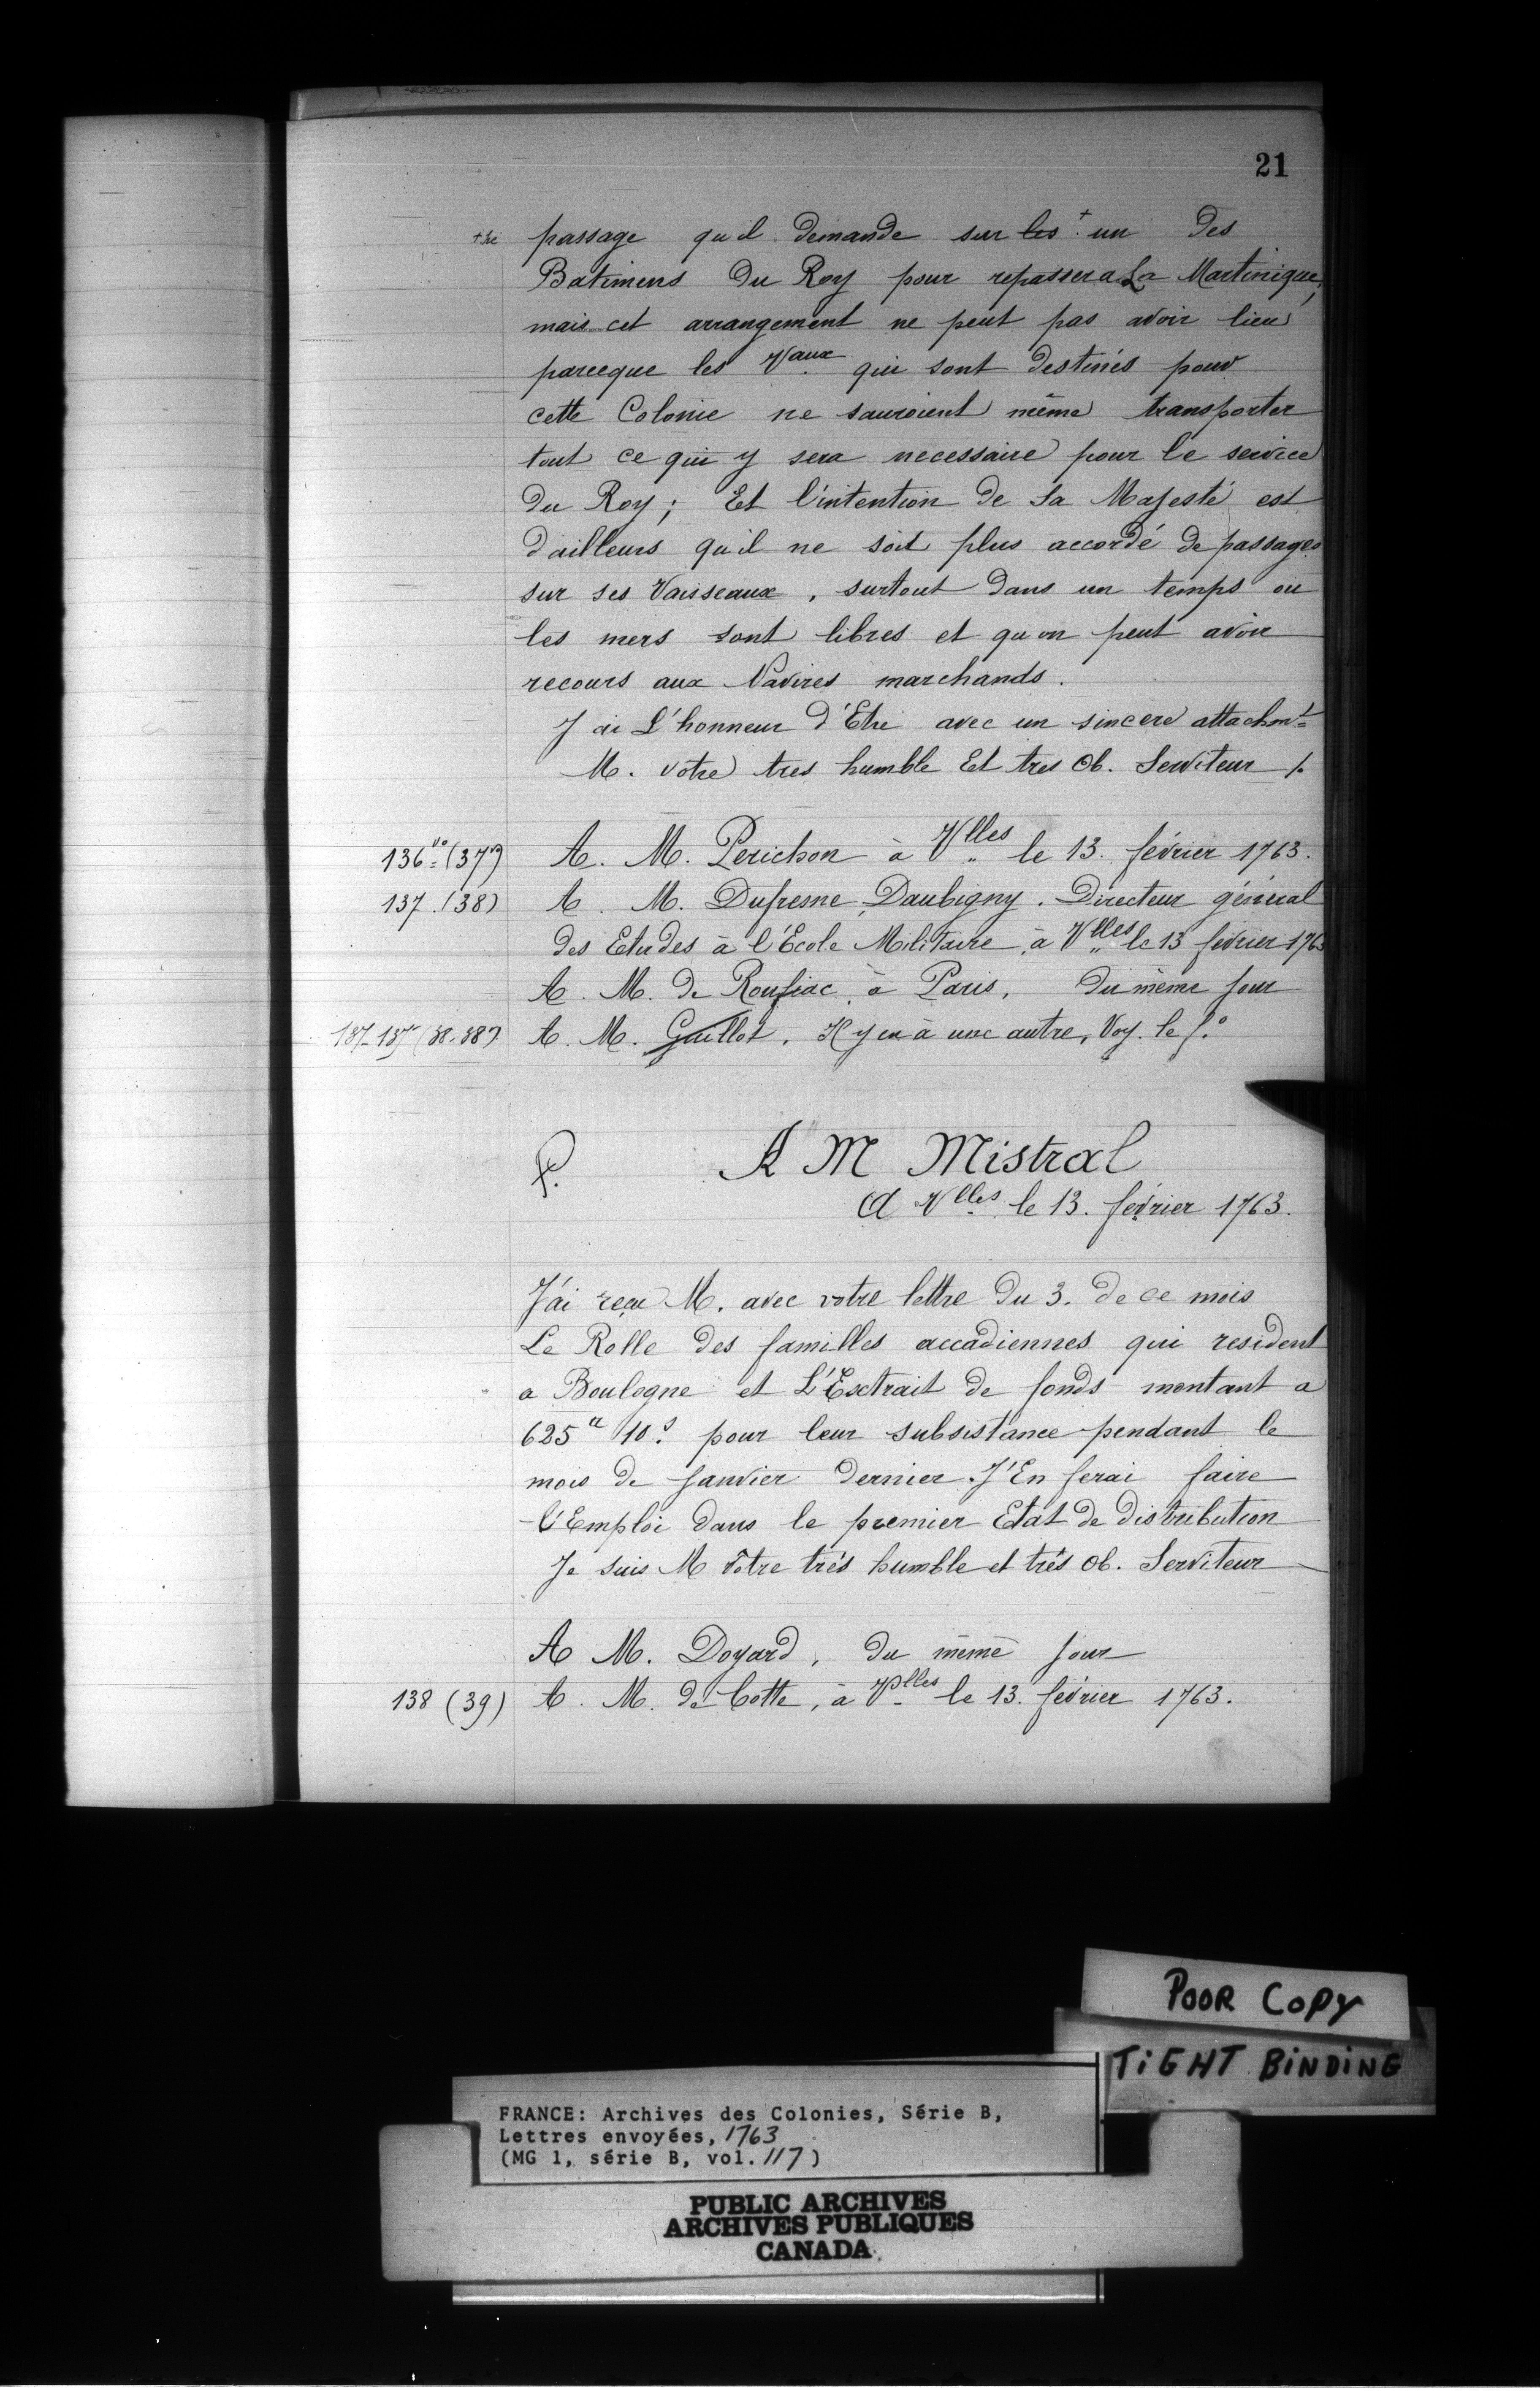 21
+sic passage qu'il demande sur les + un des
Batimens du Roy pour repasser a La Martinique,
mais cet arrangement ne peut pas avoir lieu
parceque les Vaux qui sont destinés pour
cette Colonie ne sauroient même transporter
tout ce qui y sera necessaire pour le service
du Roy; Et l'intention de Sa Majesté est
dailleurs qu'il ne soit plus accordé de passages
sur ses Vaisseaux, surtout dans un temps ou
les mers sont libres et qu'on peut avoir
recours aux Navires marchands.
J'ai L'honneur d'Etre avec un sincere attachmt
M. votre tres humble Et tres Ob. Serviteur /.
136 vo (37 vo) A. M. Perichon à Vlles le 13. février 1763.
137. (38) A. M. Dufresne Daubigny. Directeur général
des Etudes à l'École Militaire, à Vlles le 13 février 1763
A. M. de Roufiac, à Paris, du même jour
137-137 (38-38) A. M. Guillot. Il y en à une autre, Voy. le fo
P. A M Mistral
A Vlles le 13. février 1763.
J'ai reçu M. avec votre lettre du 3. de ce mois
Le Rolle des familles accadiennes qui resident
a Boulogne et L'Extrait de fonds montant a
625tt 10s pour leur subsistance pendant le
mois de Janvier dernier. J'En ferai faire
l'Emploi dans le premier Etat de distribution
Je suis M Votre trés humble et trés Ob. Serviteur
A M. Doyard, du même jour
138 (39) A. M. de Cotte, à Vlles le 13. février 1763.
POOR COPY
TIGHT BINDING
FRANCE: Archives des Colonies, Série B,
Lettres envoyées, 1763
(MG 1, série B, vol. 117)
PUBLIC ARCHIVES
ARCHIVES PUBLIQUES
CANADA